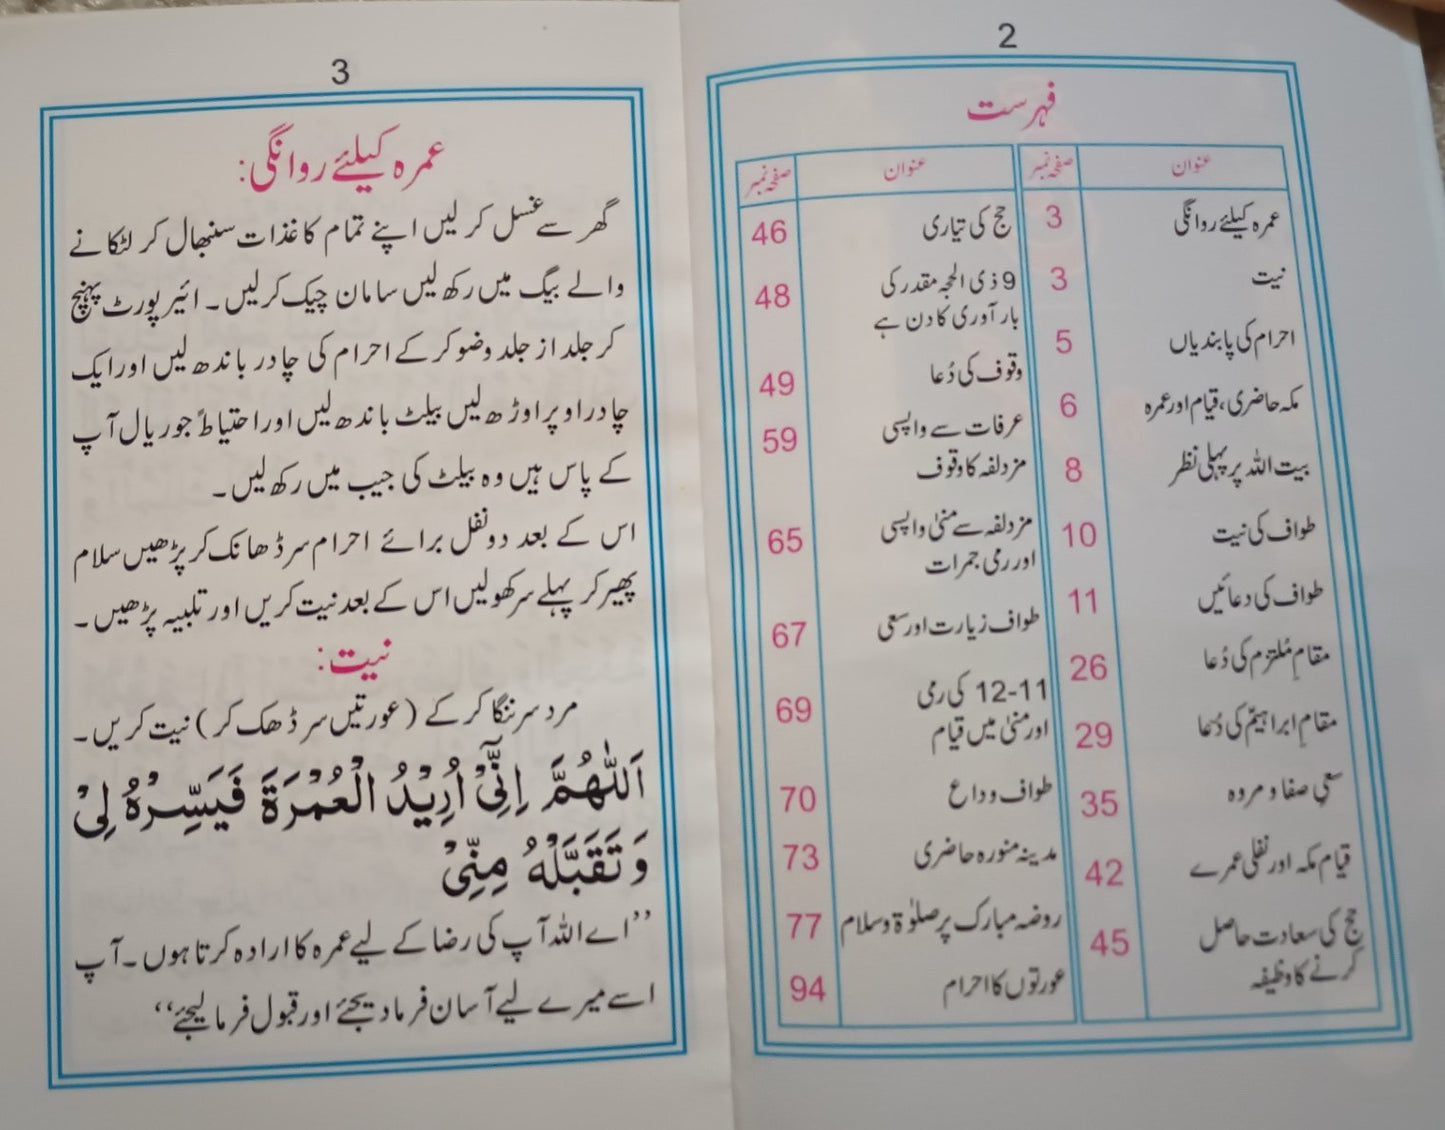 2
فہرست
عنوان صفحہ نمبر
عمرہ کیلئے روانگی 3
نیت 3
احرام کی پابندیاں 5
مکہ حاضری، قیام اور عمرہ 6
بیت اللہ پر پہلی نظر 8
طواف کی نیت 10
طواف کی دعائیں 11
مقامِ مُلتزم کی دُعا 26
مقامِ ابراہیمؑ کی دُعا 29
سعیِ صفا و مروہ 35
قیام مکہ اور نفلی عمرے 42
حج کی سعادت حاصل 45
کرنے کا وظیفہ
عنوان صفحہ نمبر
حج کی تیاری 46
9 ذی الحجہ مقدر کی 48
بار آوری کا دن ہے
وقوف کی دُعا 49
عرفات سے واپسی 59
مزدلفہ کا وقوف
مزدلفہ سے منیٰ واپسی 65
اور رمی جمرات
طواف زیارت اور سعی 67
11-12 کی رمی 69
اور منیٰ میں قیام
طواف وداع 70
مدینہ منورہ حاضری 73
روضہ مبارک پر صلوٰۃ وسلام 77
عورتوں کا احرام 94
3
عمرہ کیلئے روانگی:
گھر سے غسل کر لیں اپنے تمام کاغذات سنبھال کر لٹکانے
والے بیگ میں رکھ لیں سامان چیک کرلیں۔ ائیر پورٹ پہنچ
کر جلد از جلد وضو کر کے احرام کی چادر باندھ لیں اور ایک
چادر اوپر اوڑھ لیں بیلٹ باندھ لیں اور احتیاطاً جو ریال آپ
کے پاس ہیں وہ بیلٹ کی جیب میں رکھ لیں۔
اس کے بعد دو نفل برائے احرام سر ڈھانک کر پڑھیں سلام
پھیر کر پہلے سر کھولیں اس کے بعد نیت کریں اور تلبیہ پڑھیں۔
نیت:
مرد سر ننگا کر کے (عورتیں سر ڈھک کر) نیت کریں۔
اَللّٰهُمَّ اِنِّیْٓ اُرِیْدُ الْعُمْرَةَ فَیَسِّرْهُ لِیْ
وَ تَقَبَّلْهُ مِنِّیْ
’’اے اللہ آپ کی رضا کے لیے عمرہ کا ارادہ کرتا ہوں۔ آپ
اسے میرے لیے آسان فرما دیجئے اور قبول فرما لیجئے‘‘